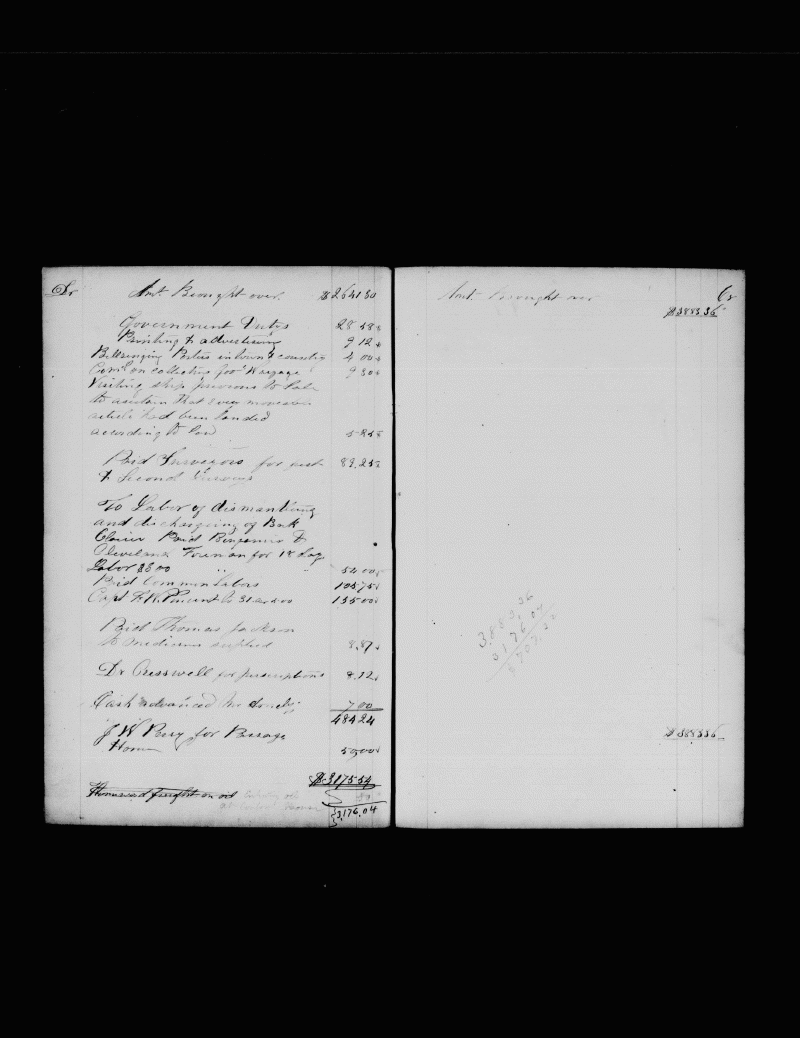 Dr Amt. Brought over. $2641 30
Government Duties 28 58
Printing & advertising 9 12
Bellringing Parties in town & country 4 00
Com. on collecting 9 80
Visiting ship previous to Sale
to ascertain that every moveable
article had been landed
according to law 5 25
Paid Surveyors for first 89.25
& Second Surveys
To Labor of dismantling
and discharging of Bark
Paid Benjamin &
Cleveland Foreman for 18 day
Labor 3.00 " " 54 00
Paid Common Labors 105.75
Capt F. W. Vincent 135 00
Paid Thomas Jackson
to medicine supplied 8.87
Dr Cresswell for prescriptions 8.12
Cash advanced 7 00
484 24
J W Perry for Passage
Home 50 00
$3175.54
Homeward freight on oil
3,176.04
Amt. Brought over Cr
$3883.36
3,883.36
3,176.04
$3883 36